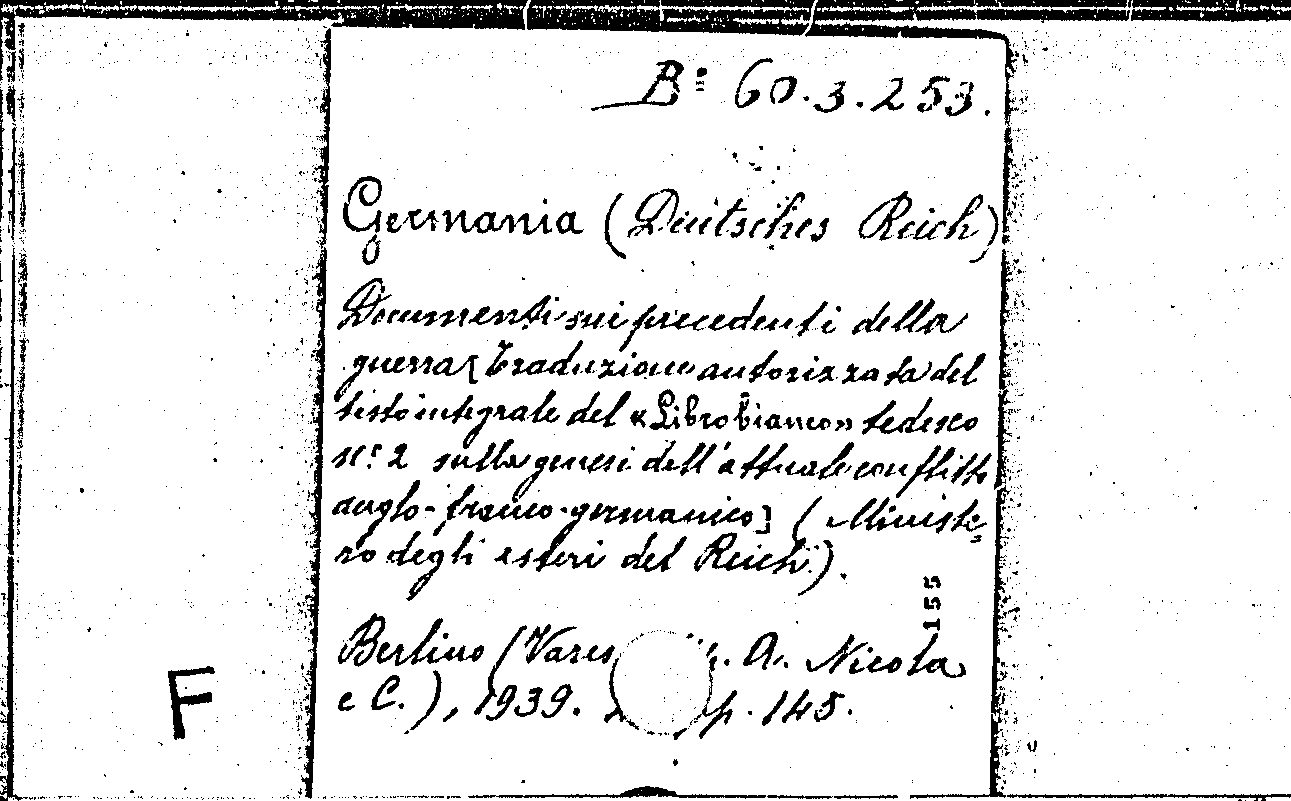 B: 60.3.253.
Germania (Deutsches Reich)
Documenti sui precedenti della
guerra [Traduzione autorizzata del
testo integrale del «Libro bianco» tedesco
n.º 2 sulla genesi dell'attuale conflitto
anglo-franco-germanico] (Ministe=
ro degli esteri del Reich).
155
Berlino (Vares A. Nicola
e C.), 1939. p. 145.
F